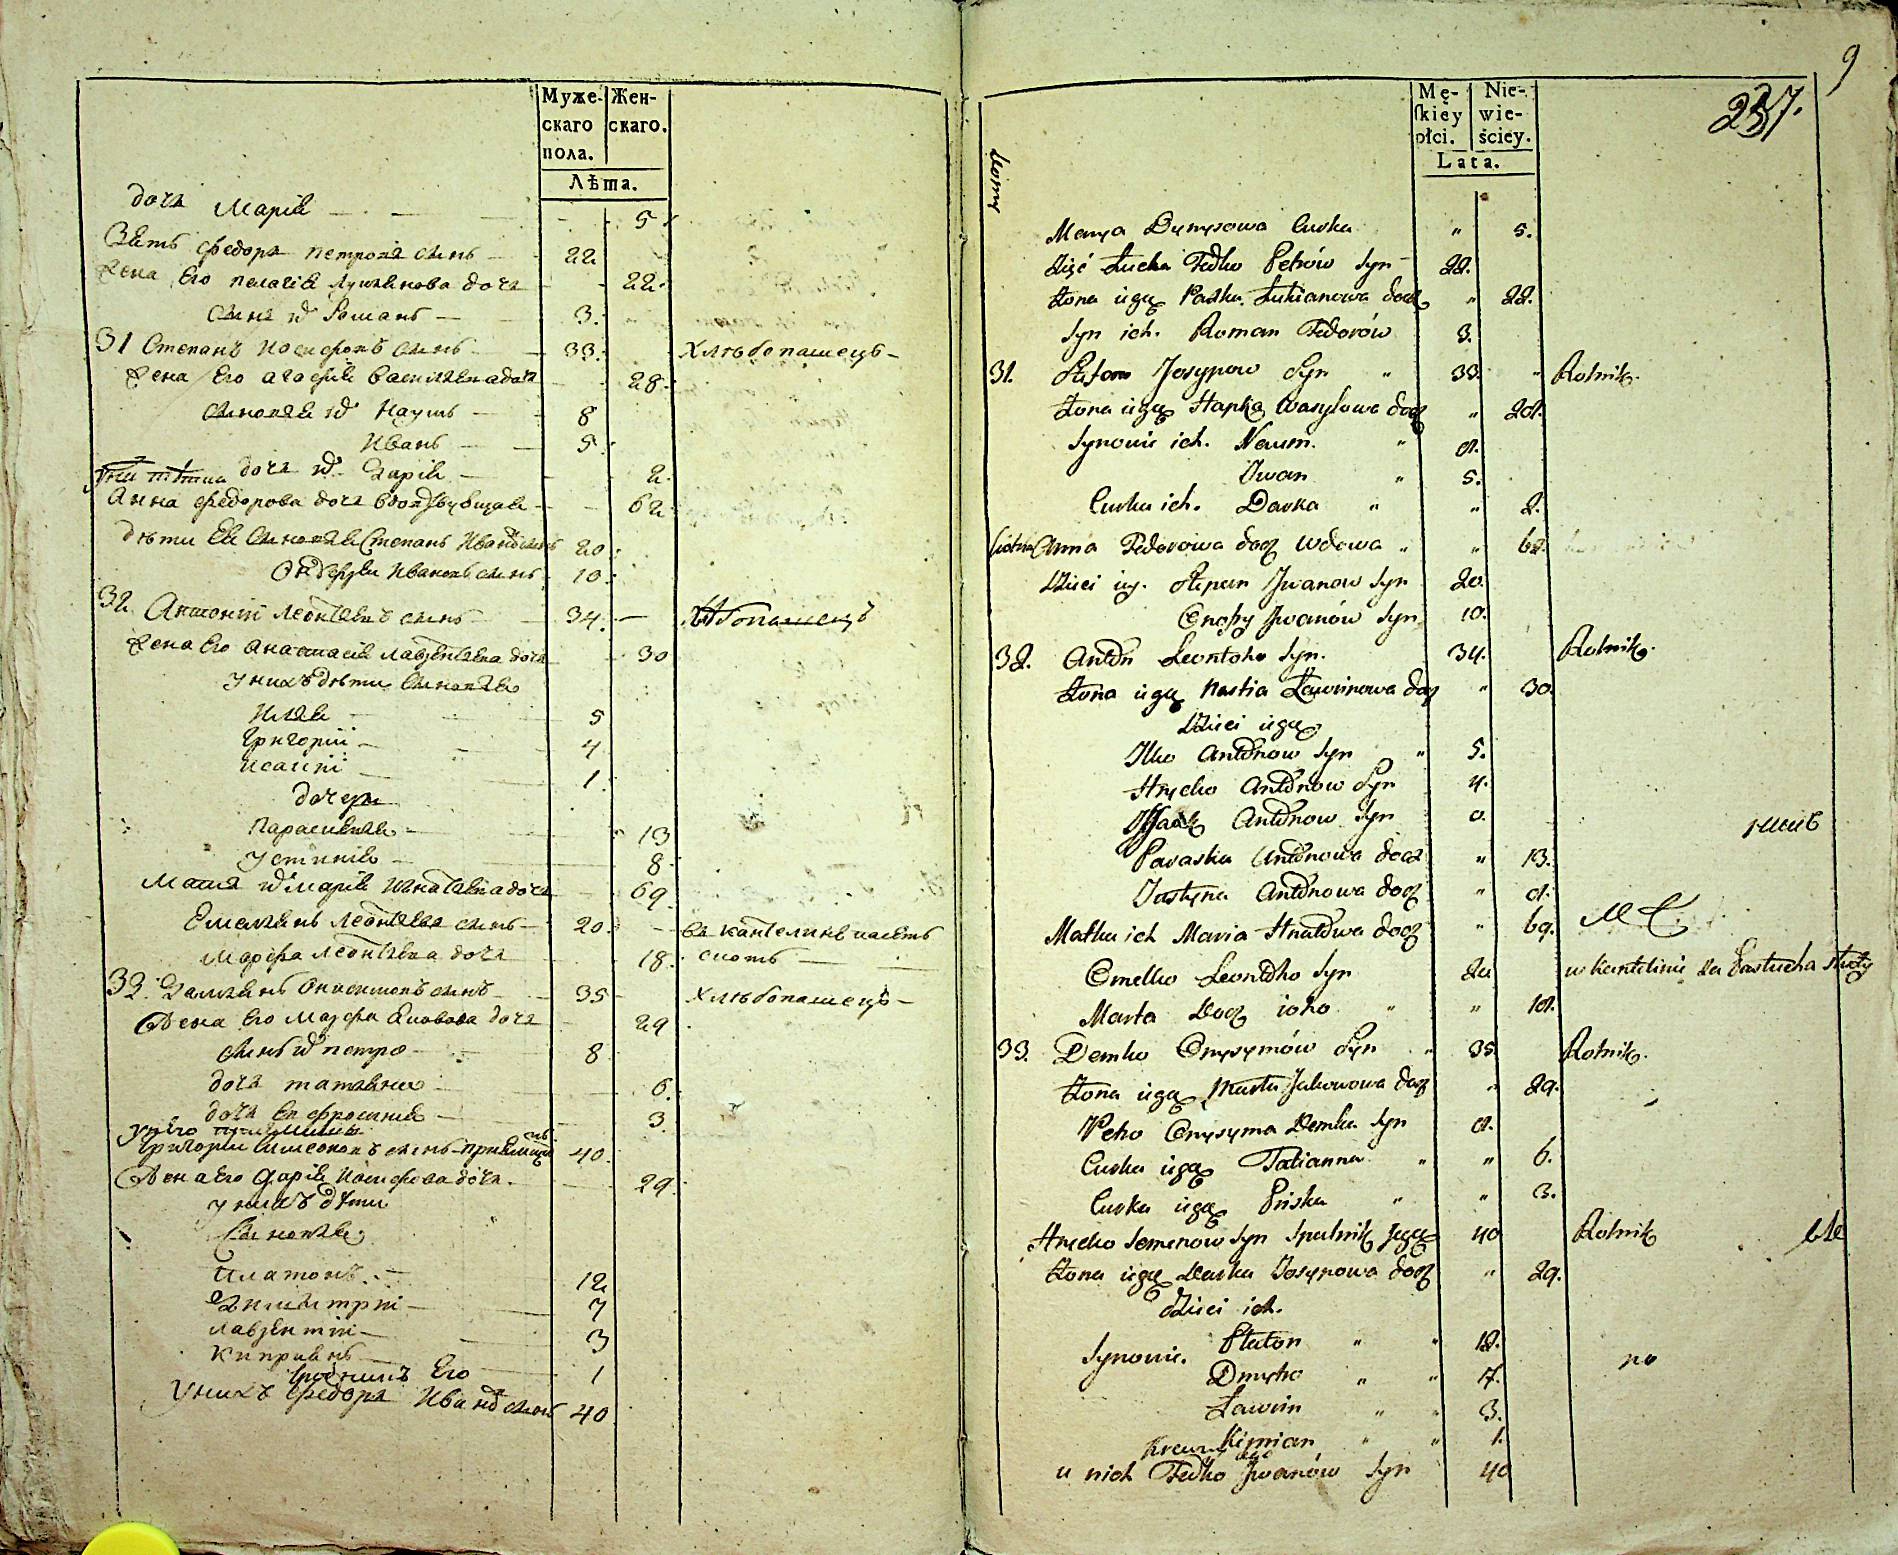 Муже-
скаго
пола.
Жен-
скаго.
Лѣта.
доча Марія 5
Зять Федоръ Петровъ синъ 22
Жена Его Пелагія Лукіянова доча 22
Синъ их Романъ 3.
31 Степанъ Иосифовъ синъ 33. Хлѣбопашецъ
Жена Его Агафія Василіевна доча 28.
синовя их Наумъ 8
Иванъ 5
доча их Дарія 2.
у них тѣтка
Анна Федорова доча вдовствующая 62
дѣти Ея синовя Степанъ Иванов синъ 20
Андрей Ивановъ синъ 10.
32 Антоній Леонтіевъ синъ 34. Хлѣбопашецъ
Жена Его Анастасія Лаврентіева доча 30
у нихъ дѣти синовя
Илія 5
Григорій 4
Исаакій 1.
дочери
Параскевія 13
Устинія 8
Матя их Марія Игнатіевна доча 69
Емеліянъ Леонтіевъ синъ 20. в Кантелинѣ пасетъ
Марфа Леонтіева доча 18. скотъ
33. Даміянъ Онисимовъ синъ 35 Хлѣбопашецъ
Жена Его Марфа Яковова доча 29
синъ их Петро 8
доча Татіяна 6.
доча Ефросинія 3.
у него
Григорій Симеоновъ синъ 40.
Жена Его Дарія Иосифова доча. 29.
у нихъ дѣти
Синовя
Платонъ 12
Димитрій 7
Лаврентій 3
Кипріянъ 1
Его
У нихъ Федоръ Иванов синъ 40
9
Mę-
skiey
płci.
Nie-
wie-
ściey.
Lata.
237.
Domy
Marya Dymysowa Curka " 5.
Zięć Fedko Petrów Syn 22.
Żona iego Paska Łukianowa docz " 22.
Syn ich. Roman Fedorów 3.
31. Stefan Josypow Syn " 33. " Rolnik.
Żona iego Hapka Wasylowa docz " 28.
Synowie ich. Neum. " 8.
Jwan " 5.
Curka ich. Darka " " 2.
Ciotka Anna Fedorowa docz Wdowa " " 62.
Dzieci iey. Stepan Jwanow Syn 20.
Jwanów Syn 10.
32. Anton Leontoho Syn. 34. Rolnik.
Żona iego Nastia Ławrinowa docz " 30.
Dzieci iego
Ilko Antonow Syn " 5.
Hrycko Antonow Syn 4.
Antonow Syn
Paraska Antonowa docz " 13.
Justyna Antonowa docz " 8.
Matka ich Maria Hnatowa docz " 69.
Omelko Leontoho Syn 20 w Kantelinie za Pastucha służy
Marta Docz ioho " " 18.
33. Demko Onysymów Syn " 35. Rolnik.
Żona iego Marta Jakowowa docz " 29.
Petro Onysyma Demka Syn 8.
Curka iego Tatianna " " 6.
Curka iego Priska " " 3.
Hrycko Semenow Syn Spulnik Jego 40 Rolnik
Żona iego Darka Josypowa docz " 29.
Dzieci ich.
Synowie. Platon " " 12.
Dmytro " " 7.
Ławrin " " 3.
Kiprian " " 1.
Krewny
u nich Fedko Jwanów Syn 40